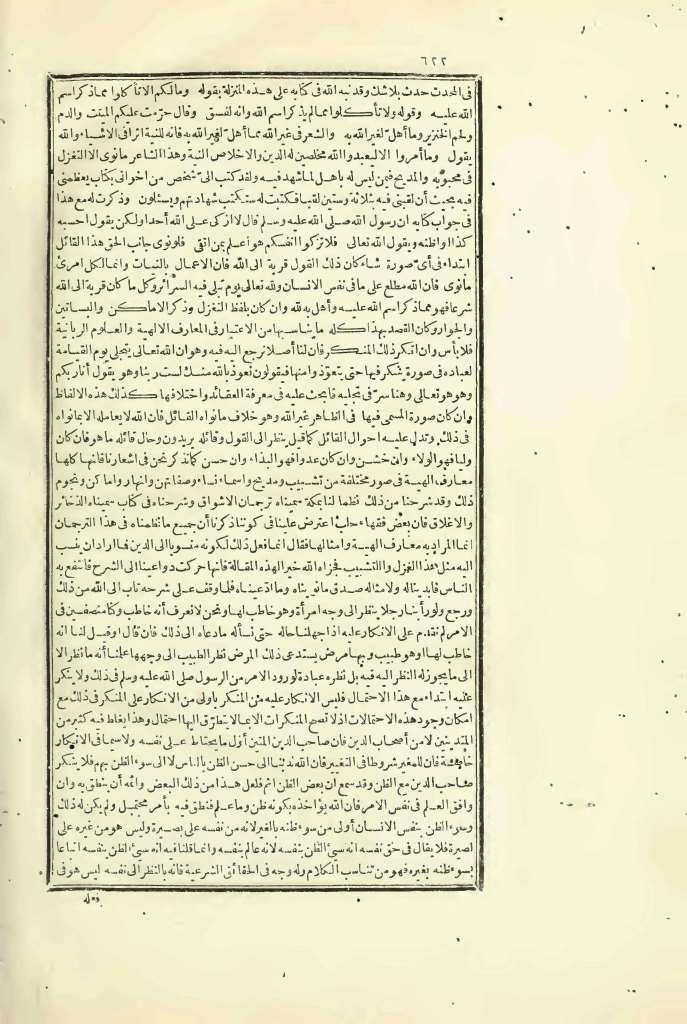 ٦٢٢
فى المحدث حدث بلاشك وقد نبه الله فى كتابه على هذه المنزلة بقوله ومالكم الاتأكلوا مماذكر اسم
الله عليه وقوله ولا تأكلوا ممالم يذكر اسم الله وانه لفسق وقال حرّمت عليكم الميتة والدم
ولحم الخنزير وما أهل لغير الله به والشعر فى غير الله مما أهل لغير الله به فانه للنية اثر فى الاشياء والله
يقول وما أمروا الا ليعبدوا الله مخلصين له الدين والاخلاص النية وهذا الشاعر مانوى الا التغزل
فى محبوبه والمديح فيمن ليس له باهل لما شهد فيه ولقد كتب الىّ شخص من اخوانى بكتاب يعظمنى
فيه بحيث أن لقبنى فيه بثلاثة وستين لقبا فكتبت له ستكتب شهادتهم ويسئلون وذكرت له مع هذا
فى جواب كتابه ان رسول الله صلى الله عليه وسلم قال لا ازكى على الله أحدا ولكن يقول احسبه
كذا واظنه ويقول الله تعالى فلا تزكوا أنفسكم هو أعلم بمن اتقى فلو نوى جانب الحق هذا القائل
ابتداء فى أىّ صورة شاء كان ذلك القول قربة الى الله فان الاعمال بالنيات وانما لكل امرئ
مانوى فان الله مطلع على مافى نفس الانسان ولله تعالى يوم تبلى فيه السرائر وكل ما كان قربة الى الله
شرعا فهو مماذكر اسم الله عليه وأهل به لله وان كان بلفظ التغزل وذكر الاماكن والبساتين
والجوار وكان القصد بهذا كله ما يناسبها من الاعتبار فى المعارف الالهية والعلوم الربانية
فلا بأس وان انكر ذلك المنكر فان لنا أصلا نرجع اليه فيه وهو ان الله تعالى يتجلى يوم القيامة
لعباده فى صورة ينكر فيها حتى يتعوّذوا منها فيقولون نعوذ بالله منك لست ربنا وهو يقول أنا ربكم
وهو هو تعالى وهنا سرّ فى تجليه فابحث عليه فى معرفة العقائد واختلافها كذلك هذه الالفاظ
وان كان صورة المسمى فيها فى الظاهر غير الله وهو خلاف مانواه القائل فان الله لا يعامله الا بمانواه
فى ذلك وتدل عليه احوال القائل كما قيل ينظر الى القول وقائله يريدون وحال قائله ماهو فان كان
وليا فهو الولاء وان خشن وان كان عدوا فهو البذاء وان حسن كما نذكر نحن فى اشعارنا فانها كلها
معارف الهية فى صور مختلفة من تشبيب ومديح واسماء نساء وصفاتهن وانهار واماكن ونجوم
ذلك وقد شرحنا من ذلك نظما لنا بمكة سميناه ترجمان الاشواق وشرحناه فى كتاب سميناه الذخائر
والاغلاق فان بعض فقهاء حلب اعترض علينا فى كوننا ذكرنا أن جميع ما نظمناه فى هذا الترجمان
انما المراد به معارف الهية وامثالها فقال انما فعل ذلك لكونه منسوبا الى الدين فما اراد ان ينسب
اليه مثل هذا الغزل والتشبيب فجزاه الله خيرا لهذه المقالة فانها حركت دواعينا الى الشرح فانتفع به
الناس فابدينا له ولامثاله صدق مانويناه وما ادّعيناه فلما وقف على شرحه تاب الى الله من ذلك
ورجع ولو رأينا رجلا ينظر الى وجه امرأة وهو خاطب لها ونحن لا نعرف أنه خاطب وكنا منصفين فى
الامر لم نقدم على الانكار عليه اذا جهلنا حاله حتى نسأله مادعاه الى ذلك فان قال او قيل لنا انه
خاطب لها او هو طبيب وبها مرض يستدعى ذلك المرض نظر الطبيب الى وجهها علمنا أنه ما نظر الا
الى ما يجوز له النظر اليه فيه بل نظره عبادة لورود الامر من الرسول صلى الله عليه وسلم فى ذلك ولا ينكر
عليه ابتداء مع هذا الاحتمال فليس الانكار عليه من المنكر باولى من الانكار على المنكر فى ذلك مع
امكان وجود هذه الاحتمالات اذ لا تصح المنكرات الا بما لا يتطرّق اليها احتمال وهذا يغلط فيه كثير من
المتدينين لا من أصحاب الدين فان صاحب الدين المتين أول ما يحتاط على نفسه ولا سيما فى الانكار
خاصة فان للمغير شروطا فى التغيير فان الله ندبنا الى حسن الظن بالناس لا الى سوء الظن بهم فلا ينكر
صاحب الدين مع الظن وقد سمع ان بعض الظن اثم فلعل هذا من ذلك البعض واثمه أن ينطق به وان
وافق العلم فى نفس الامر فان الله يؤاخذه بكونه ظن وما علم فنطق فيه بأمر محتمل ولم يكن له ذلك
وسوء الظن بنفس الانسان أولى من سوء ظنه بالغير لانه من نفسه على بصيرة وليس هو من غيره على
بصيرة فلا يقال فى حق نفسه انه سيئ الظن بنفسه لانه عالم بنفسه وانما قلنا فيه انه سيئ الظن بنفسه اتباعا
بسوء ظنه بغيره فهو من تناسب الكلام وله وجه فى الحقائق الشرعية فانه بالنظر الى نفسه ليس هو فى